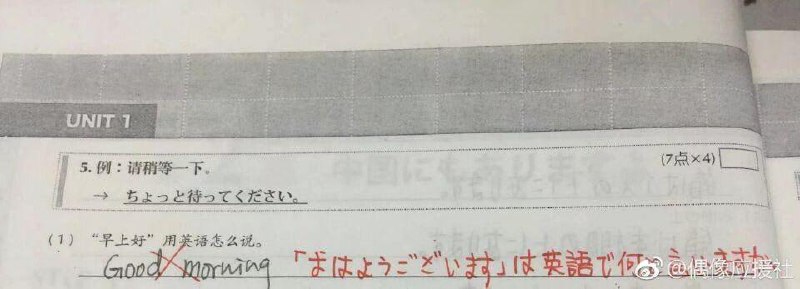 UNIT 1
5. 例：请稍等一下。
(7点×4)
→ ちょっと待ってください。
(1) “早上好”用英语怎么说。
Good morning 「おはようございます」は英語で何
@偶像应援社